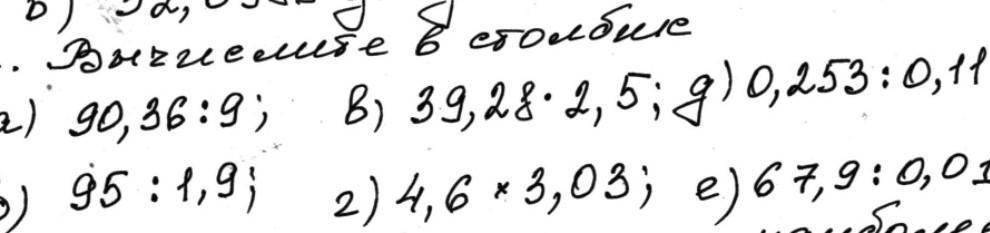 Вычислите в столбик
а) 90,36:9; в) 39,28·2,5; д) 0,253:0,11
95:1,9; г) 4,6×3,03; е) 67,9:0,01